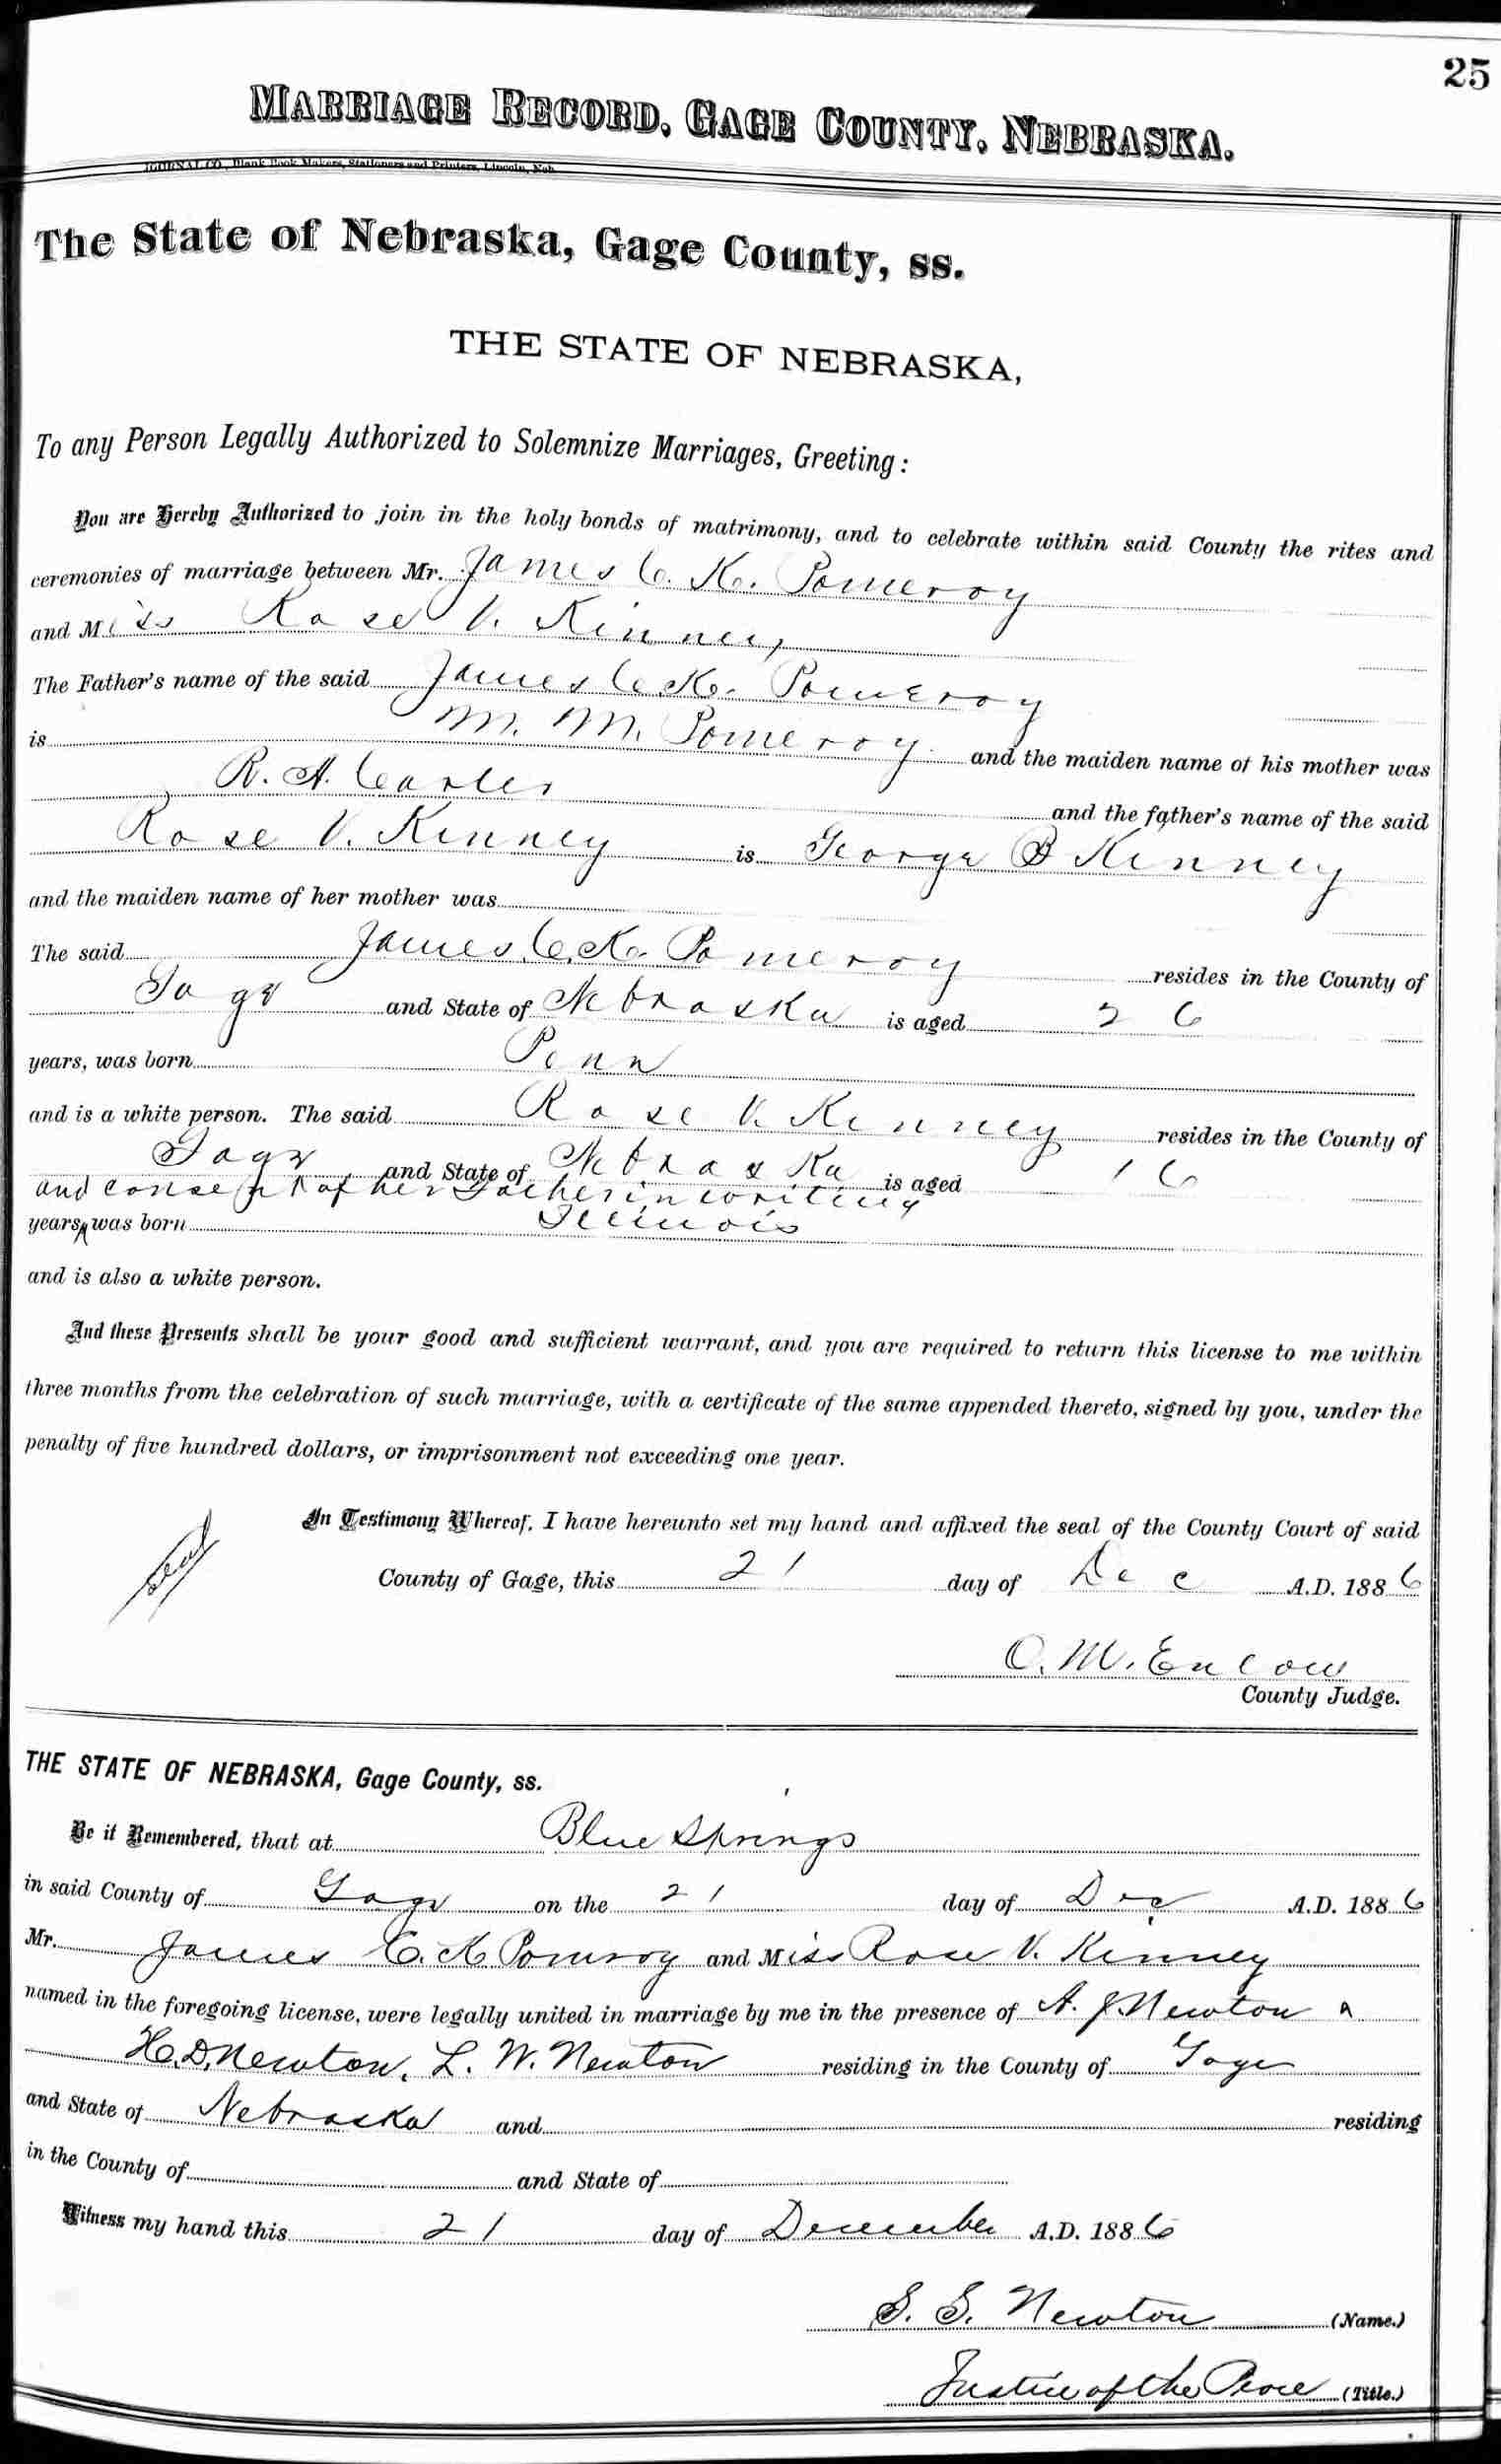 25
MARRIAGE RECORD, GAGE COUNTY, NEBRASKA.
JOURNAL CO., Blank Book Makers, Stationers and Printers, Lincoln, Neb.
The State of Nebraska, Gage County, ss.
THE STATE OF NEBRASKA,
To any Person Legally Authorized to Solemnize Marriages, Greeting:
You are Hereby Authorized to join in the holy bonds of matrimony, and to celebrate within said County the rites and
ceremonies of marriage between Mr. James C. K. Pomeroy
and Miss Rose V. Kinney
The Father's name of the said James C. K. Pomeroy
is M. M. Pomeroy and the maiden name of his mother was
R. A. and the father's name of the said
Rose V. Kinney is George B Kinney
and the maiden name of her mother was
The said James C. K. Pomeroy resides in the County of
Gage and State of Nebraska is aged 26
years, was born Penn
and is a white person. The said Rose V. Kinney resides in the County of
Gage and State of Nebraska is aged 16
and consent of her Father in writing
years, was born Illinois
and is also a white person.
And these Presents shall be your good and sufficient warrant, and you are required to return this license to me within
three months from the celebration of such marriage, with a certificate of the same appended thereto, signed by you, under the
penalty of five hundred dollars, or imprisonment not exceeding one year.
In Testimony Whereof, I have hereunto set my hand and affixed the seal of the County Court of said
seal
County of Gage, this 21 day of Dec A.D. 1886
O. M. Enlow
County Judge.
THE STATE OF NEBRASKA, Gage County, ss.
Be it Remembered, that at Blue Springs
in said County of Gage on the 21 day of Dec A.D. 1886
Mr. James C. K Pomroy and Miss Rose V. Kinney
named in the foregoing license, were legally united in marriage by me in the presence of A. J. Newton
H. D. Newton, L. W. Newton residing in the County of Gage
and State of Nebraska and residing
in the County of and State of
Witness my hand this 21 day of December A.D. 1886
S. S. Newton (Name.)
Justice of the Peace (Title.)